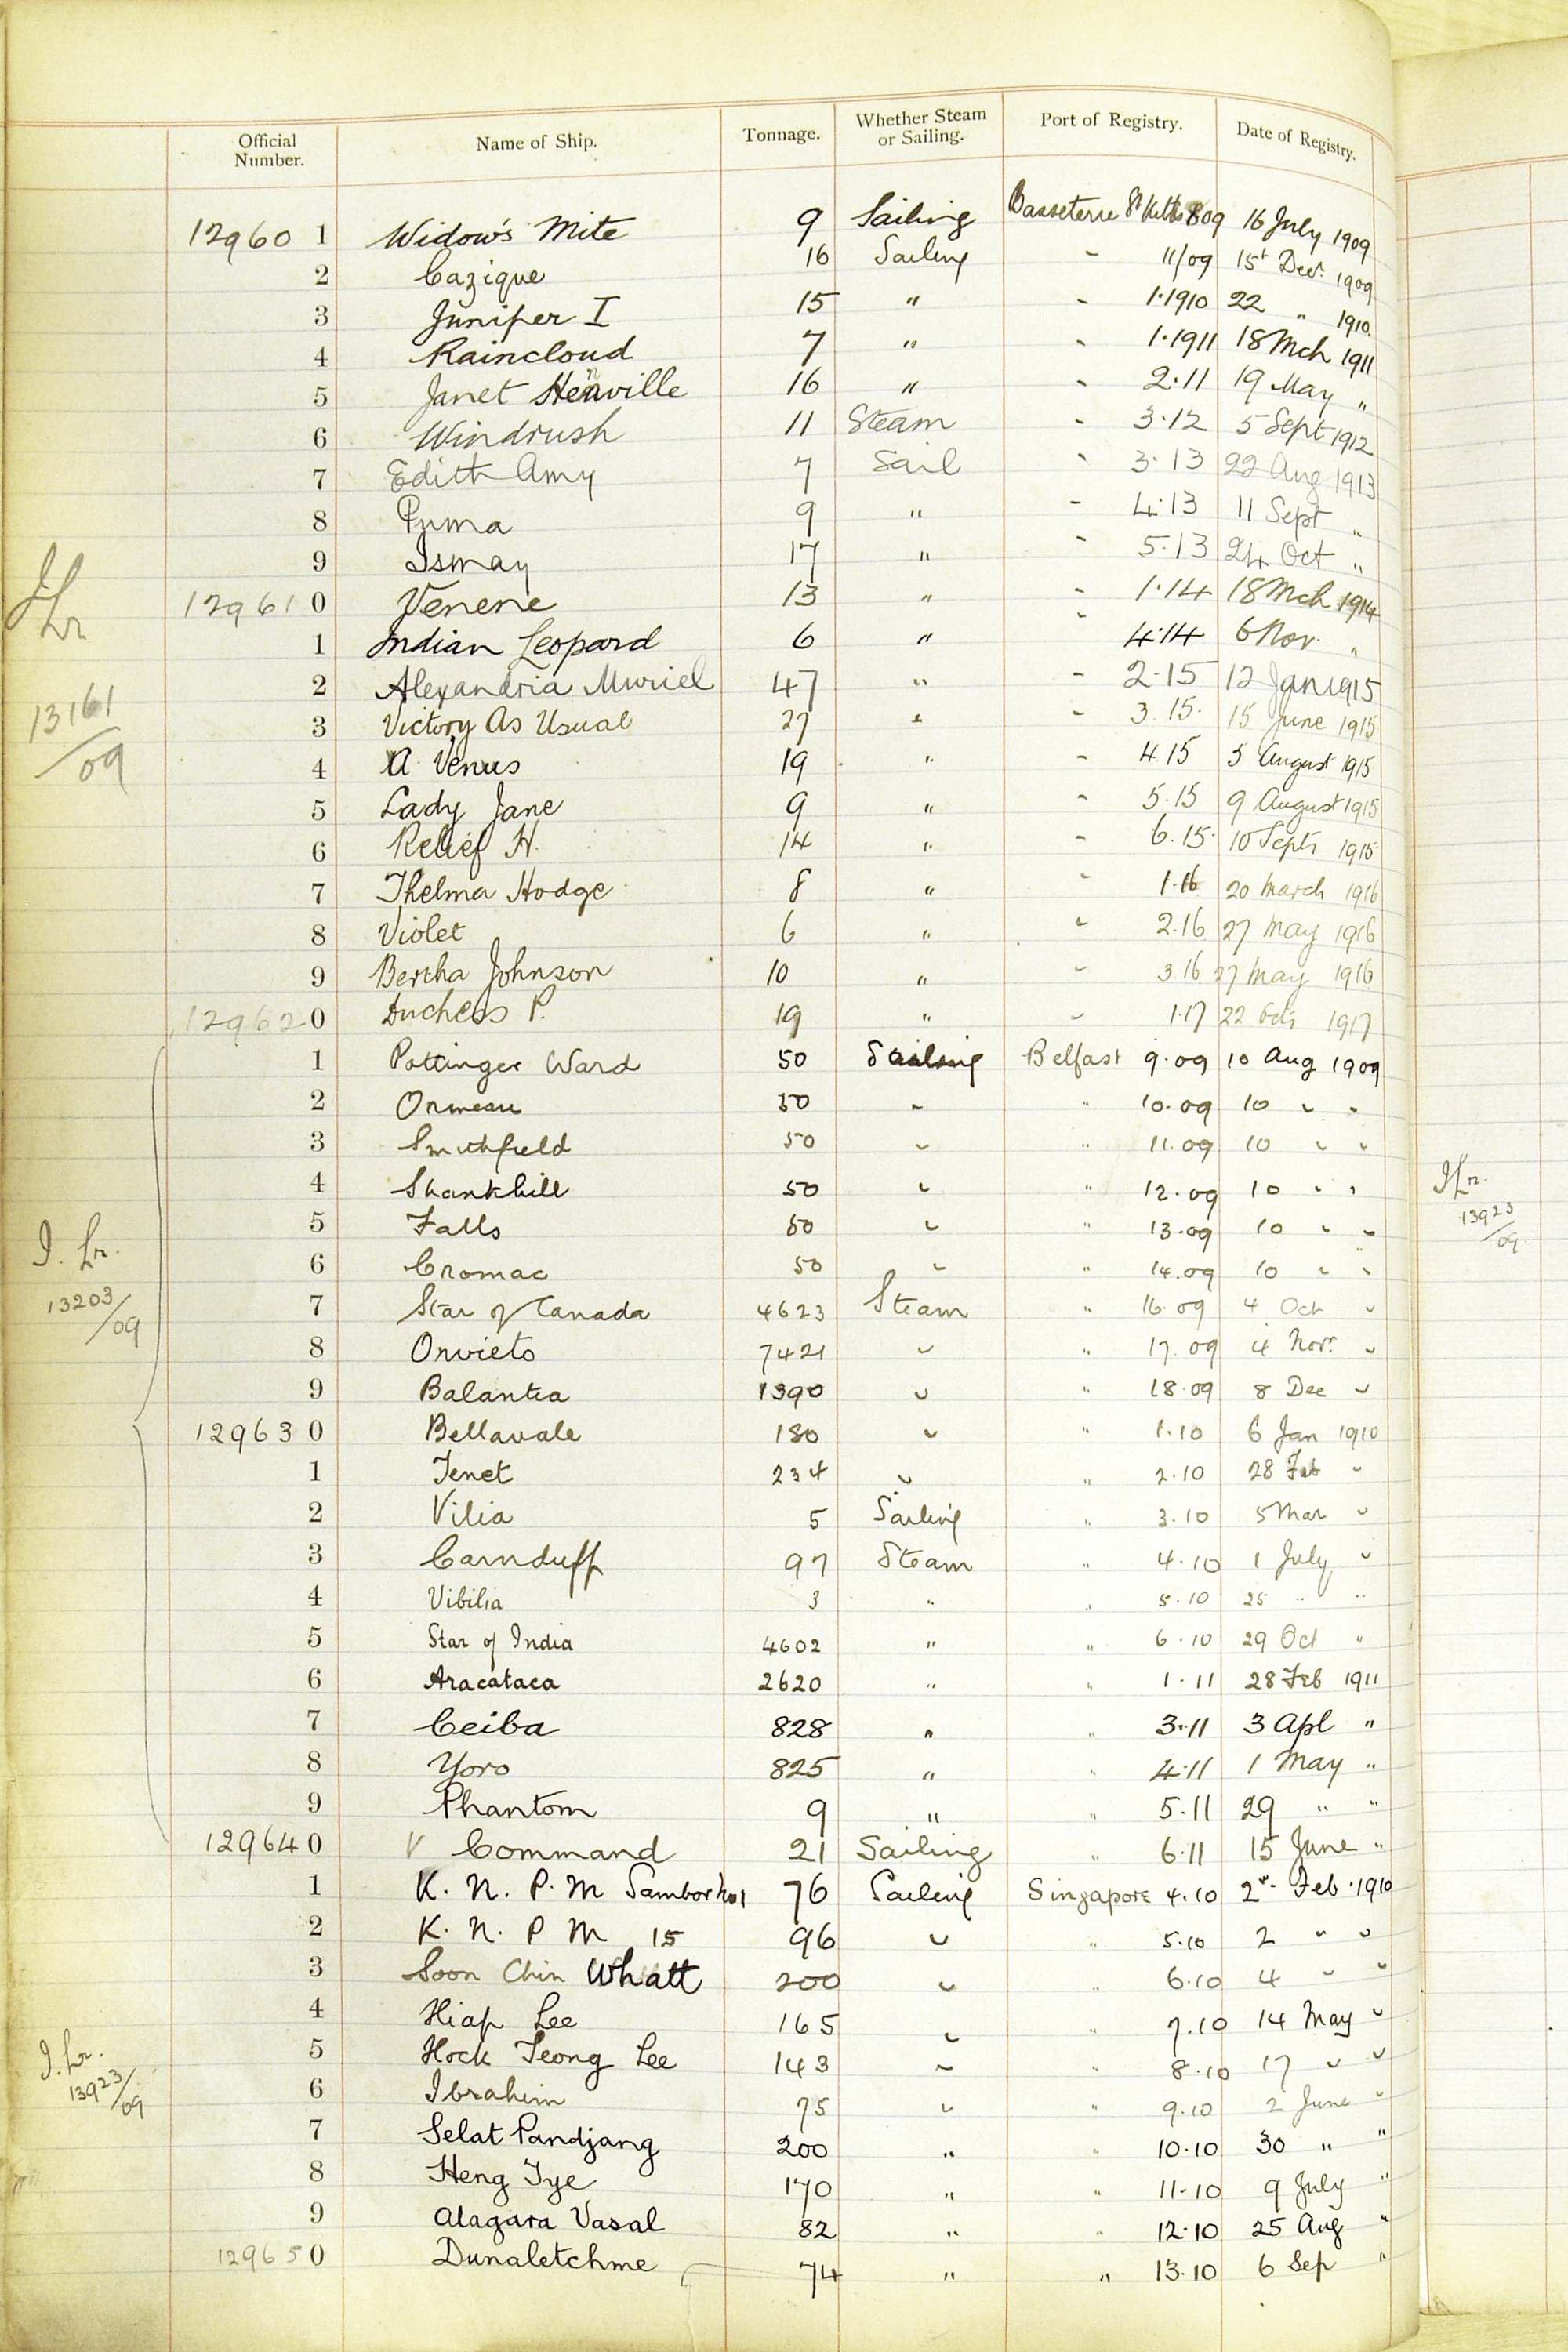 Official Number. Name of Ship. Tonnage. Whether Steam or Sailing. Port of Registry. Date of Registry.
12960 1 Widow's Mite 9 Sailing Basseterre St Kitts 8 09 16 July 1909
2 Cazique 16 Sailing - 11/09 15t Decr. 1909
3 Juniper I 15 " - 1.1910 22 " 1910.
4 Raincloud 7 " - 1.1911 18 Mch 1911
5 Janet Henville 16 " - 2.11 19 May "
6 Windrush 11 Steam - 3.12 5 Sept 1912
7 Edith Amy 7 Sail - 3.13 22 Aug 1913
8 Puma 9 " - 4.13 11 Sept "
9 Ismay 17 " - 5.13 24 Oct "
12961 0 Venene 13 " - 1.14 18 Mch 1914
1 Indian Leopard 6 " - 4.14 6 Nov. "
2 Alexandria Muriel 47 " - 2.15 12 Jan 1915
3 Victory As Usual 27 " - 3.15. 15 June 1915
4 A Venus 19 " - 4 15 5 August 1915
5 Lady Jane 9 " - 5.15 9 August 1915
6 Relief H. 14 " - 6.15. 10 Sept 1915
7 Thelma Hodge 8 " - 1.16 20 March 1916
8 Violet 6 " - 2.16 27 May 1916
9 Bertha Johnson 10 " - 3.16 27 May 1916
12962 0 Duchess P. 19 " - 1.17 22 1917
1 Pottinger Ward 50 Sailing Belfast 9.09 10 Aug 1909
2 Ormeau 50 " " 10.09 10 " "
3 Smithfield 50 " " 11.09 10 " "
4 Shankhill 50 " " 12.09 10 " "
5 Falls 50 " " 13.09 10 " "
6 Cromac 50 " " 14.09 10 " "
7 Star of Canada 4623 Steam " 16.09 4 Oct "
8 Orvieto 7421 " " 17.09 4 Novr. "
9 Balantia 1390 " " 18.09 8 Dec "
12963 0 Bellavale 180 " " 1.10 6 Jan 1910
1 Tenet 234 " " 2.10 28 Feb "
2 Vilia 5 Sailing " 3.10 5 Mar "
3 Carnduff 97 Steam " 4.10 1 July "
4 Vibilia 3 " " 5.10 25 " "
5 Star of India 4602 " " 6.10 29 Oct "
6 Aracataca 2620 " " 1.11 28 Feb 1911
7 Ceiba 828 " " 3.11 3 Apl "
8 Yoro 825 " " 4.11 1 May "
9 Phantom 9 " " 5.11 29 " "
12964 0 V Command 21 Sailing " 6.11 15 June "
1 K. N. P. M 76 Sailing Singapore 4.10 2 Feb. 1910
2 K. N. P M 15 96 " " 5.10 2 " "
3 Soon Chin Whatt 200 " " 6.10 4 " "
4 Hiap Lee 165 " " 7.10 14 May "
5 Hock Teong Lee 143 " " 8.10 17 " "
6 Ibrahim 75 " " 9.10 2 June "
7 Selat Pandjang 200 " " 10.10 30 " "
8 Heng Tye 170 " " 11.10 9 July "
9 Alagara Vasal 82 " " 12.10 25 Aug "
12965 0 Dunaletchme 74 " " 13.10 6 Sep "
13161/09
I. Lr.
13203/09
I. Lr.
13923/09
I Lr.
13923/09